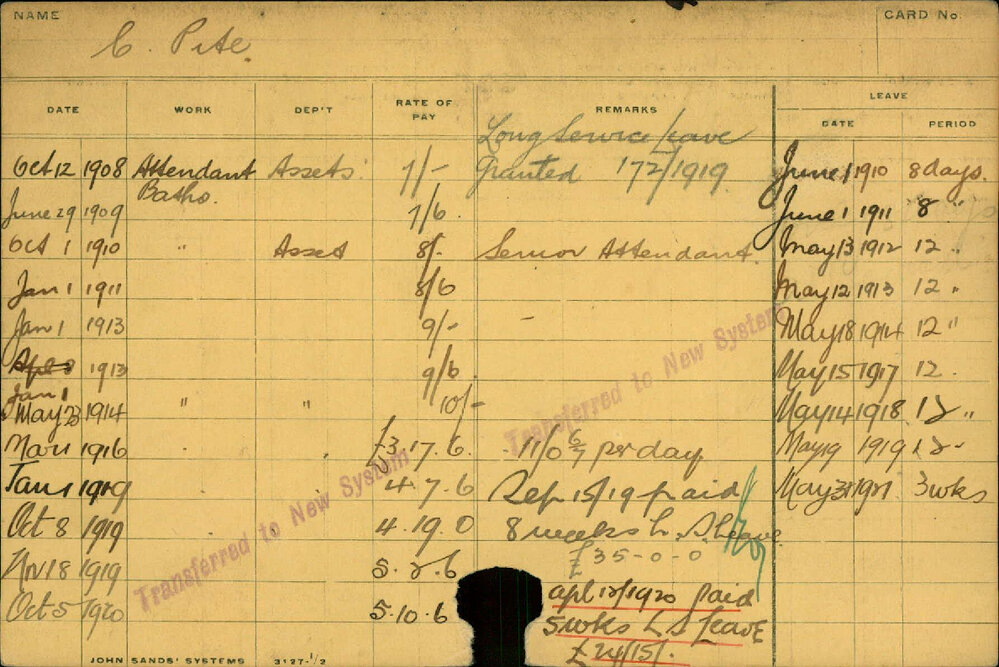 NAME
CARD No.
C. Pite.
DATE WORK DEP'T RATE OF PAY REMARKS LEAVE
DATE PERIOD
Long Service Leave
Oct 12 1908 Attendant Assets. 7/- Granted 172/1919 June 1 1910 8 days.
Baths.
June 29 1909 7/6 June 1 1911 8 "
Oct 1 1910 " Asset 8/- Senior Attendant. May 13 1912 12 "
Jan 1 1911 8/6 May 12 1913 12 "
Jan 1 1913 9/- - May 18 1914 12 "
Apl 8 1913 9/6 May 15 1917 12 "
Jan 1
May 23 1914 " " 10/- May 14 1918 12 "
Mar 1 1916 " " £3.17.6 11/0 6/7 per day May 19 1919 12 "
Jan 1 1919 4.7.6 Sep 15/19 paid May 31 1921 3 wks
Oct 8 1919 4.19.0 8 weeks L. S. Leave
£35-0-0
Nov 18 1919 5.2.6
Apl 12/1920 paid
Oct 5 1920 5.10.6 5 wks L S Leave
£24/15/-
Transferred to New System
Transferred to New System
JOHN SANDS' SYSTEMS 3127-1/2